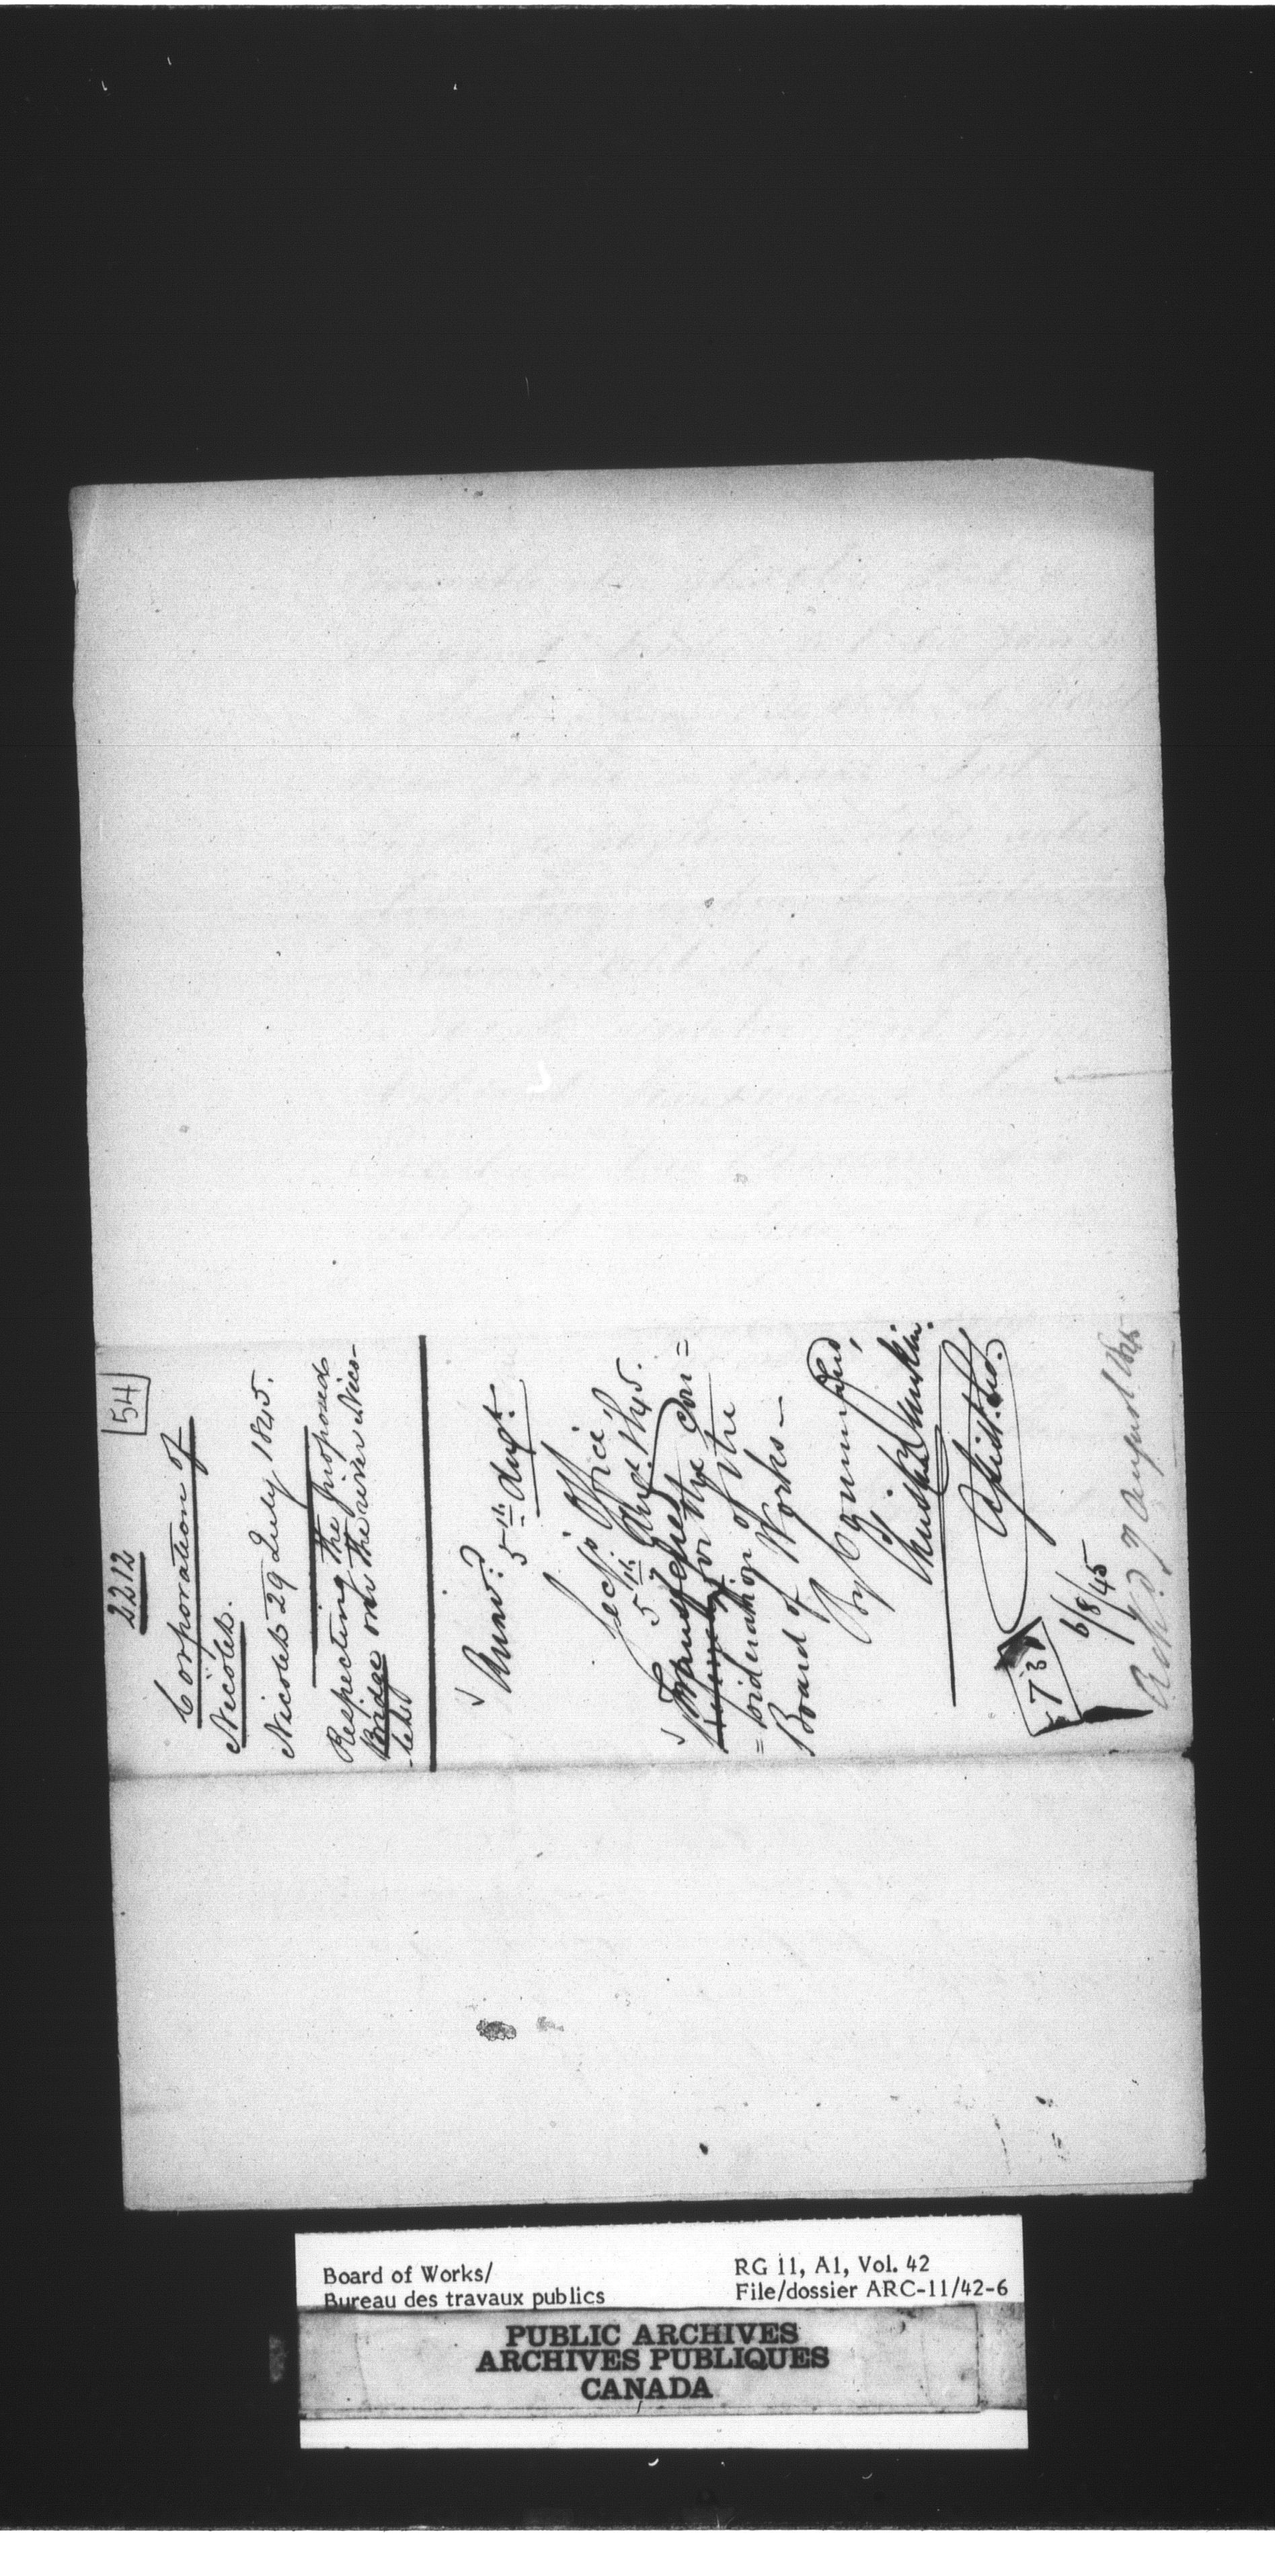 2212
54
Corporation of
Nicolet.
Nicolet 29 July 1845.
Respecting the proposed
Bridge over the river Nico-
-let
Answd.
5th Augt.
Secy's Office
5th Augt. 1845.
Transferred
Referred for the con=
=sideration of the
Board of Works—
By Command,
Asst. Sec.
73
6/8/45
Ackd. 7 August 1845
Board of Works/
Bureau des travaux publics
RG 11, A1, Vol. 42
File/dossier ARC-11/42-6
PUBLIC ARCHIVES
ARCHIVES PUBLIQUES
CANADA